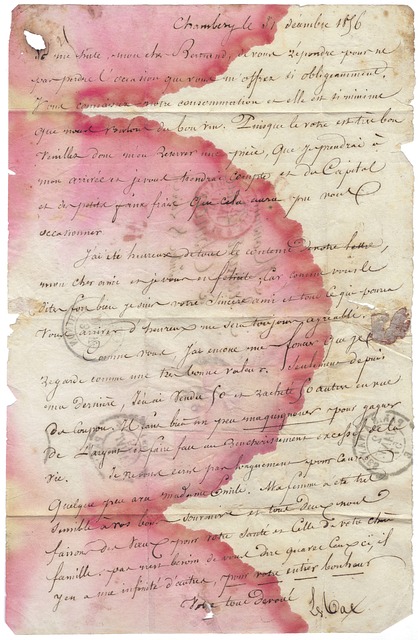 Chambéry le 31 décembre 1856
Je me hâte, mon cher Bertrand, de vous répondre pour ne
pas perdre l'occasion que vous m'offrez si obligeamment.
Vous connaissez notre consommation et elle est si minime
que nous voulons du bon vin. Puisque le votre est très bon
veuillez donc m'en réserver une pièce, que je prendrai à
mon arrivée et je vous tiendrai compte et du Capital
et des petits frais que cela aura pu vous
occasionner.
J'ai été heureux de tout le contenu de votre lettre,
mon cher ami et je vous en félicite, car comme vous le
dites fort bien je suis votre sincère ami et tout ce qui
vous arrivera d'heureux me sera toujours agréable.
Comme vous, j'ai encore que je
regarde comme une très bonne valeur. Seulement depuis
ma dernière, j'en ai vendu 50 et racheté 50 autres en vue
du coupon. Il faut bien un peu maquignonner pour gagner
de l'argent et faire face au renchérissement excessif de la
vie. Je ne vous écris pas longuement pour causer
quelque peu avec madame Emile. Ma femme a été très
sensible à vos bons souvenirs et tous deux nous
faisons des vœux pour votre santé et celle de votre chère
famille, pas n'est besoin de vous dire
y en a une infinité d'autres, pour votre entier bonheur
Votre tout dévoué